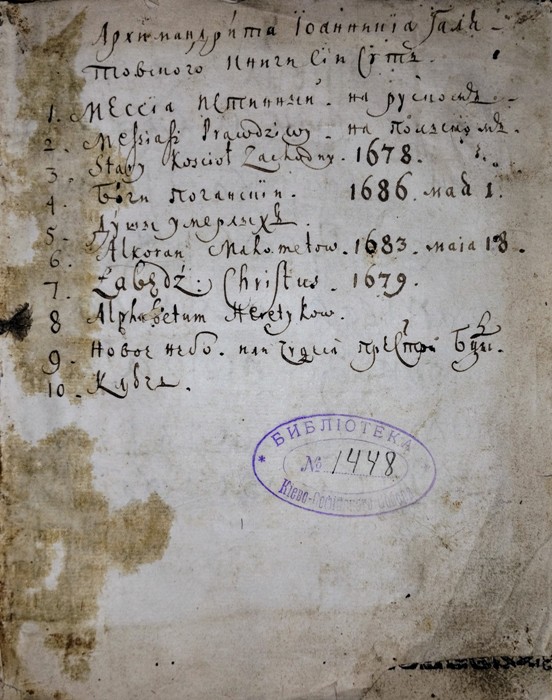 Архимандрита Іоанникіа Галѧ-
товского книги сіи сутъ.
1. Мессіа истинный. на рускомъ.
2. Messiasz Prawdziwy. на полскомъ.
3. Stary Kosciol Zachodny. 1678.
4. Боги поганскіи. 1686. маѧ 1.
5. Душы умерлыхъ.
6. Alkoran Mahometow. 1683. маіа 18.
7. Łabędź: Christus. 1679.
8 Alphabetum Heretykow.
9. Новое небо. или чудеса прест҃ои Бцы.
10. Ключъ.
БИБЛІОТЕКА
№ 1448
Кіево-Софійскаго собора